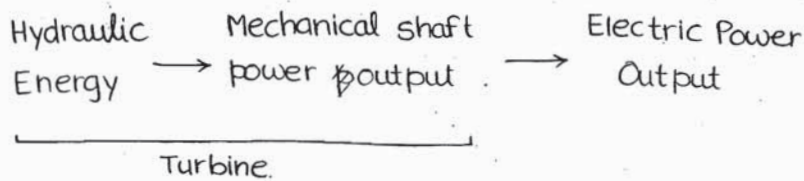 Hydraulic Energy → Mechanical shaft power output . → Electric Power Output
Turbine.